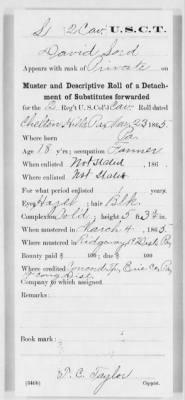 S 2 Cav U.S.C.T.
David Lord
Appears with rank of Private on
Muster and Descriptive Roll of a Detach-
ment of Substitutes forwarded
for the 2 Reg't U. S. Col'd Cav. Roll dated
Chelton Hills Pa, Jan 23 1865.
Where born Pa
Age 18 y'rs; occupation Farmer
When enlisted Not Stated, 186 .
Where enlisted Not Stated
For what period enlisted years.
Eyes Hazel; hair Blk
Complexion Cold; height 5 ft. 3 in.
When mustered in March 4, 1865
Where mustered in Ridgway 19 Dist Pa
Bounty paid $ 100; due $ 100
Where credited Erie Co, Pa
19 Cong Dist
Company to which assigned
Remarks:
Book mark:
T. C. Taylor
(346b) Copyist.